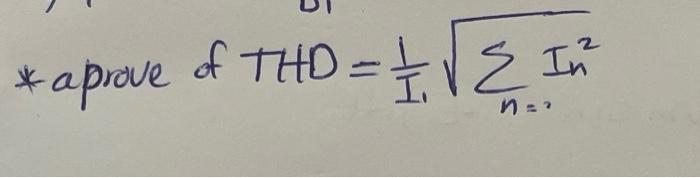 * aprove of THD = 1/I₁ √ Σ n=2 Iₙ²